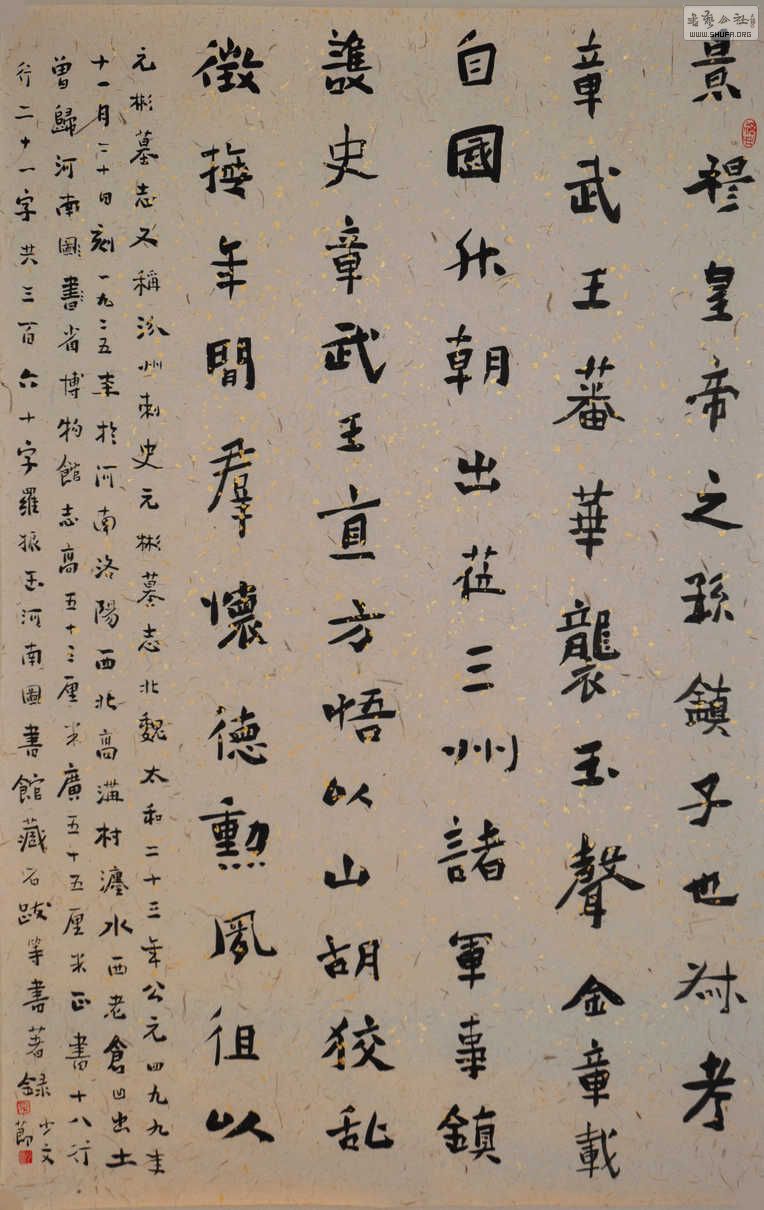 景穆皇帝之孫鎮子也叔考
章武王蕃華襲玉聲金章載
自國升朝出莅三州諸軍事鎮
護史章武王直方悟以山胡狡乱
徵撫年間羣懷德勲風徂以
元彬墓志又稱汾州刺史元彬墓志北魏太和二十三年公元四九九年
十一月二十日刻一九二五年於河南洛陽西北高溝村瀍水西老倉凹出土
曾歸河南圖書省博物館志高五十三厘米廣五十五厘米正書十八行
行二十一字共三百六十字羅振玉河南圖書館藏石跋等書著録 少文
節
书艺公社
WWW.SHUFA.ORG